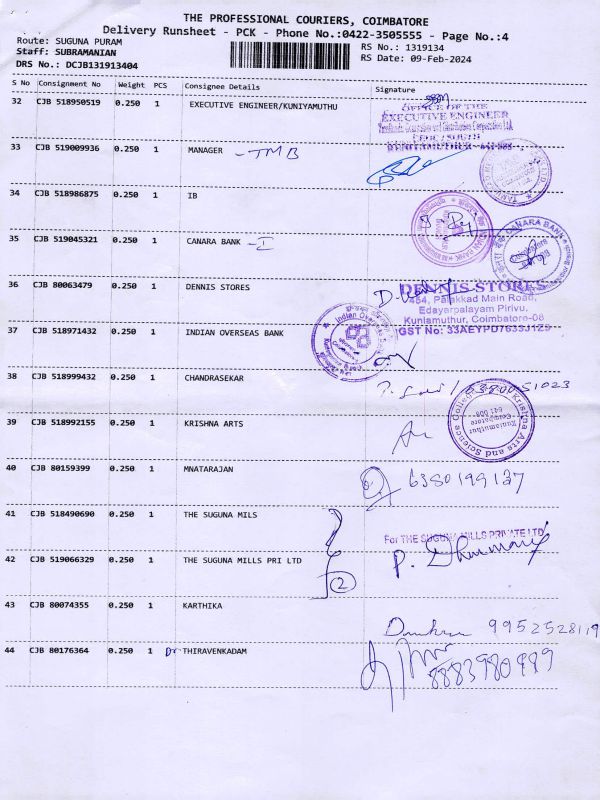 THE PROFESSIONAL COURIERS, COIMBATORE
Delivery Runsheet - PCK - Phone No.:0422-3505555 - Page No.:4
Route: SUGUNA PURAM
Staff: SUBRAMANIAN
DRS No.: DCJB131913404
RS No.: 1319134
RS Date: 09-Feb-2024
S No Consignment No Weight PCS Consignee Details Signature
32 CJB 518950519 0.250 1 EXECUTIVE ENGINEER/KUNIYAMUTHU
OFFICE OF THE
EXECUTIVE ENGINEER
33 CJB 519009936 0.250 1 MANAGER - TMB
34 CJB 518986875 0.250 1 IB
35 CJB 519045321 0.250 1 CANARA BANK - I
CANARA BANK
Coimbatore
36 CJB 80063479 0.250 1 DENNIS STORES
DENNIS STORES
464, Palakkad Main Road,
Edayarpalayam Pirivu,
Kuniamuthur, Coimbatore-08
GST No: 33AEYPD7633J1Z5
37 CJB 518971432 0.250 1 INDIAN OVERSEAS BANK
Indian Overseas
38 CJB 518999432 0.250 1 CHANDRASEKAR
39 CJB 518992155 0.250 1 KRISHNA ARTS
Krishna Arts and Science College
Kuniamuthur
Coimbatore
641 008
40 CJB 80159399 0.250 1 MNATARAJAN
6380199127
41 CJB 518490690 0.250 1 THE SUGUNA MILS
For THE SUGUNA MILLS PRIVATE LTD
42 CJB 519066329 0.250 1 THE SUGUNA MILLS PRI LTD
2
43 CJB 80074355 0.250 1 KARTHIKA
9952528119
44 CJB 80176364 0.250 1 Dr THIRAVENKADAM
8883980449